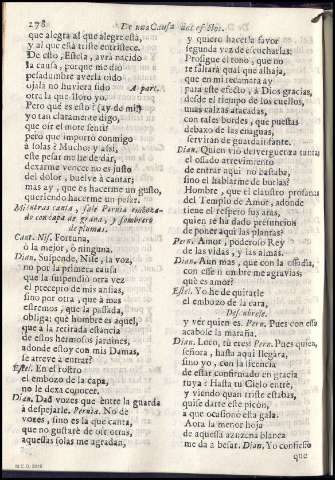 278 De una Causa dos efectos.
que alegra al que alegre está,
y al que está triste entristece.
De esto, Estela, avrá nacido
la causa, porque me dió
pesadumbre averla oido
ojalá no huviera sido A part.
otra la que lloro yo.
Pero què es esto? (ay de mi!)
yo tan claramente digo,
que oir el mote senti?
pero que importa conmigo
à solas? Mucho; y assi,
este pesar me he de dar,
dexarme vencer no es justo
del dolor, buelve à cantar;
mas ay, que es hacerme un gusto,
queriendo hacerme un pesar.
Mientras canta, sale Pernia emboza-
do con capa de grana, y sombrero
de plumas.
Cant. Nis. Fortuna,
ò la mejor, ò ninguna.
Dian. Suspende, Nise, la voz,
no por la primera causa
que la suspendió otra vez
el precepto de mis ansias,
sino por otra, que à mas
estremos, que la passada,
obliga: què hombre es aquel,
que à la retirada estancia
de estos hermosos jardines,
adonde estoy con mis Damas,
se atreve à entrar?
Estel. En el rostro
el embozo de la capa,
no le dexa conocer.
Dian. Dad vozes que entre la guarda
à despejarle. Pernia. No dè
vozes, sino es la que canta,
que no gustarè de oir otras,
aquessas solas me agradan,
y quiero hacerla favor
segunda vez de escucharlas:
Prosigue el tono, que no
te faltará qual que alhaja,
que en mi recamara ay
para este efecto, à Dios gracias,
desde el tiempo de los cuellos,
mas calzas atacadas,
con tales bordes, que puestas
debaxo de las enaguas,
servirán de guardainfante.
Dian. Quien vió desverguenza tanta!
el osado atrevimiento
de entrar aqui no bastaba,
sino el hablarme de burlas?
Hombre, que el claustro profanas
del Templo de Amor, adonde
tiene el respeto sus aras,
quien te ha dado presumpcion
de poner aqui las plantas?
Pern. Amor, poderoso Rey
de las vidas, y las almas.
Dian. Aun mas, que con la ossadia,
con esse nombre me agravias;
què es amor?
Estel. Yo he de quitarle
el embozo de la cara,
Descubrele.
y vèr quien es. Pern. Pues con esso
acabòse la maraña.
Dian. Loco, tu eres? Pern. Pues quien,
señora, hasta aqui llegára,
sino yo, con la licencia
de estar confirmado en gracia
tuya? Hasta tu Cielo entrè,
y viendo quan triste estabas,
quise darte este picon,
à que ocasionè esta gala.
Aora la menor hoja
de aquessa azuzena blanca
me da à besar. Dian. Yo confiesso
que